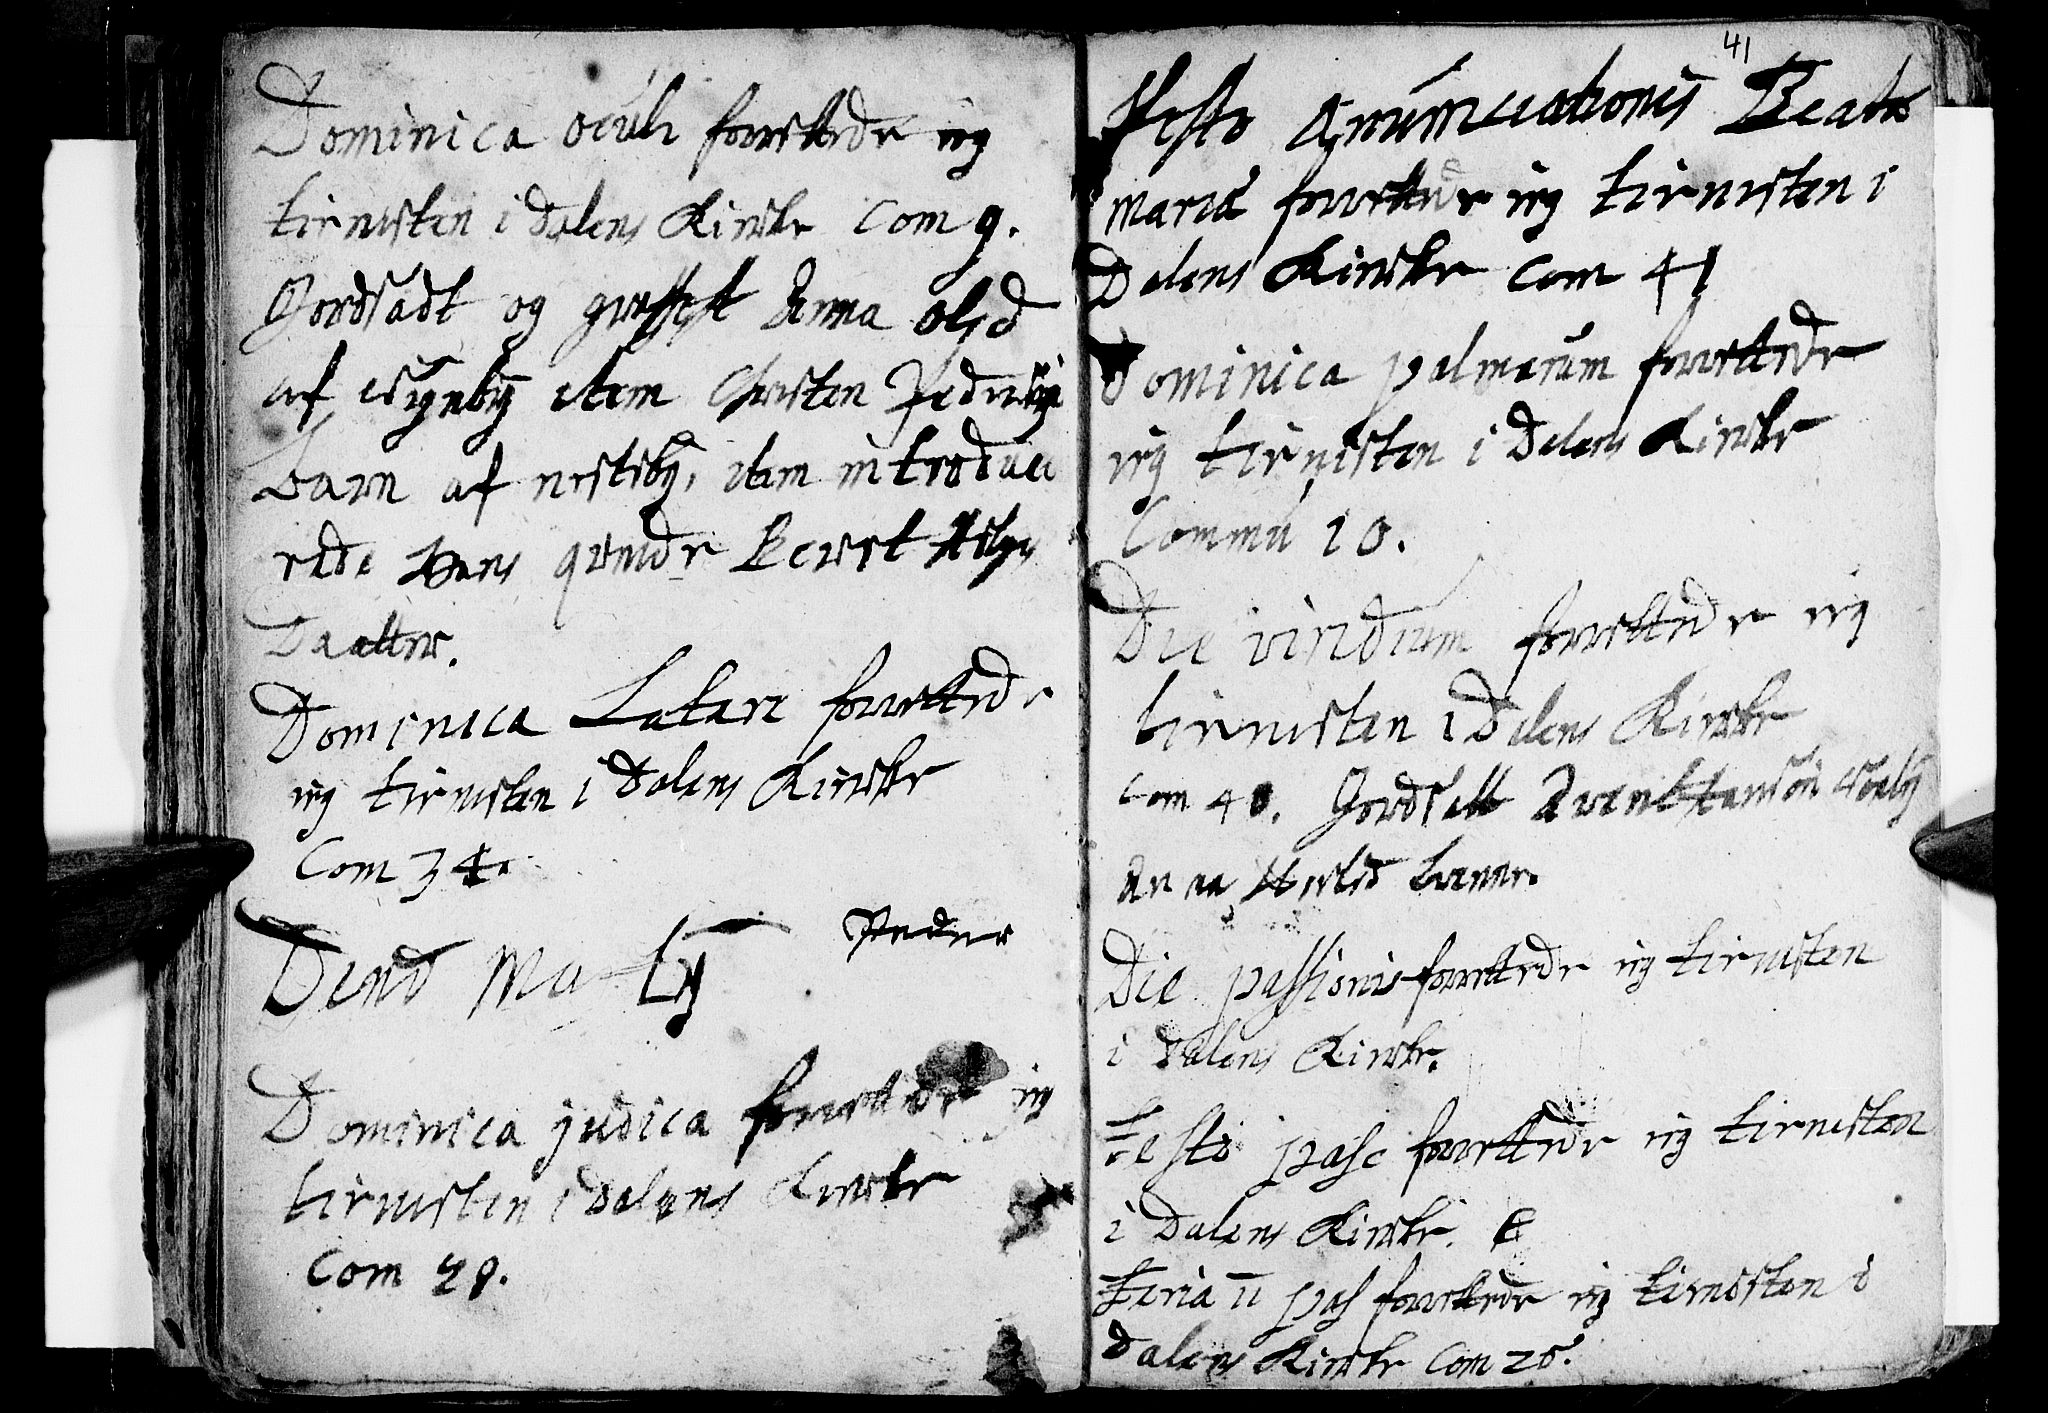 Dominica oculi forrettede ieg
tienesten i Dalens Kircke Com 9.
Jordsadt og Anna olsd
af item Christen
barn af item introduce
rede Hans qvinde Berret
Daatter.
Domenica Latare forrettede
ieg tienesten i Dalens Kircke
Com 34.
Peder
Dend
Dominica judica forrettede ieg
tienesten i Dalens Kircke
Com 28.
41
Festo Anunciationis Beatæ
Mariæ forrettede ieg tienesten i
Dalens Kircke Com 41
Dominica palmarum forrettede
ieg tienesten i Dalens Kircke
Commu 10.
Die viridium forrettede ieg
tienesten i Dalens Kircke
Com 40. Jordsatt
Die passionis forrettede ieg tienesten
i Dalens Kircke.
Festo pasc forrettede ieg tienesten
i Dalens Kircke.
Feria II pas forrettede ieg tienesten i
Dalens Kircke Com 26.